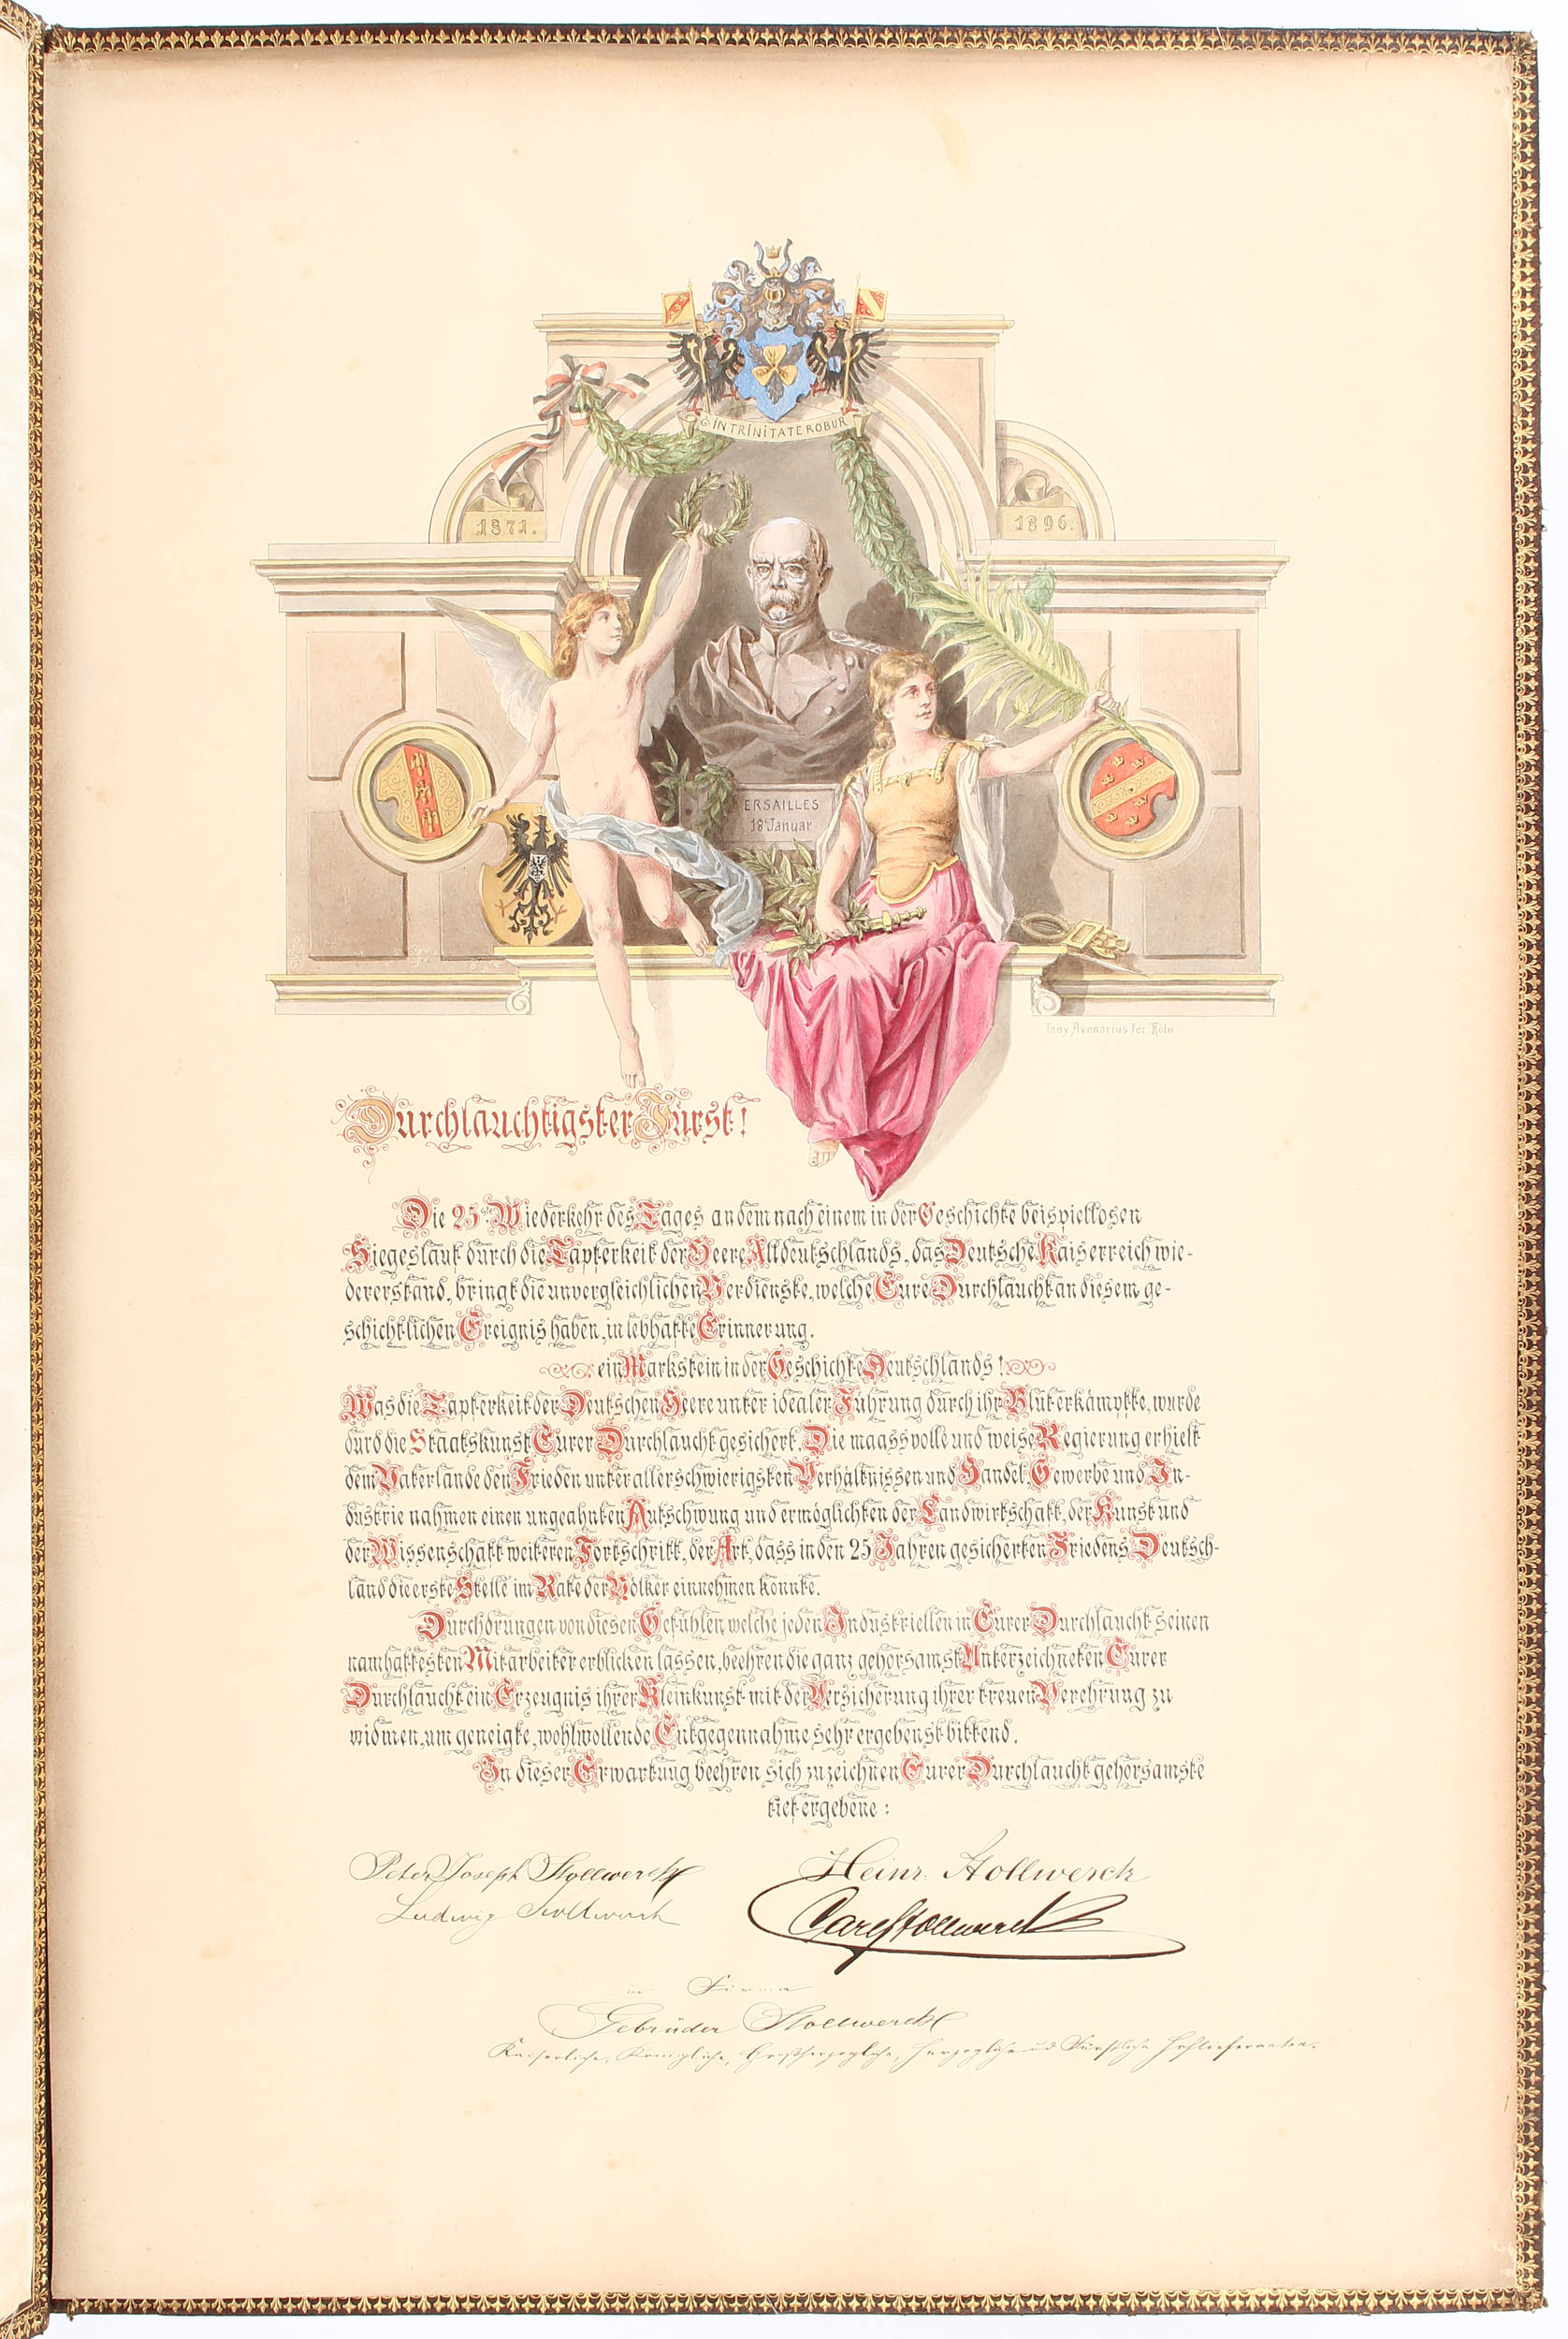 IN TRINITATE ROBUR
1871.
1896.
ERSAILLES
18t Januar.
Tony Avenarius fec. Köln
Durchlauchtigster Fürst!
Die 25ste Wiederkehr des Tages an dem nach einem in der Geschichte beispiellosen
Siegeslauf durch die Tapferkeit der Heere Alldeutschlands, das Deutsche Kaiserreich wie-
dererstand, bringt die unvergleichlichen Verdienste, welche Eure Durchlaucht an diesem ge-
schichtlichen Ereignis haben, in lebhafte Erinnerung.
ein Markstein in der Geschichte Deutschlands!
Was die Tapferkeit der Deutschen Heere unter idealer Führung durch ihr Blut erkämpfte, wurde
durd die Staatskunst Eurer Durchlaucht gesichert. Die maassvolle und weise Regierung erhielt
dem Vaterlande den Frieden unter allerschwierigsten Verhältnissen und Handel, Gewerbe und In-
dustrie nahmen einen ungeahnten Aufschwung und ermöglichten der Landwirtschaft, der Kunst und
der Wissenschaft weiteren Fortschritt, der Art, dass in den 25 Jahren gesicherten Friedens Deutsch-
land die erste Stelle im Rate der Völker einnehmen konnte.
Durchdrungen von diesen Gefühlen, welche jeden Industriellen in Eurer Durchlaucht seinen
namhaftesten Mitarbeiter erblicken lassen, beehren die ganz gehorsamst Unterzeichneten Eurer
Durchlaucht ein Erzeugnis ihrer Kleinkunst mit der Versicherung ihrer treuen Verehrung zu
widmen, um geneigte, wohlwollende Entgegennahme sehr ergebenst bittend.
In dieser Erwartung beehren sich zu zeichnen Eurer Durchlaucht gehorsamste
tief ergebene:
Peter Joseph Stollwerck
Heinr. Stollwerck
Ludwig Stollwerck
Carl Stollwerck
in Firma
Gebrüder Stollwerck
Kaiserliche, Königliche, Großherzogliche, Herzogliche und Fürstliche Hoflieferanten.